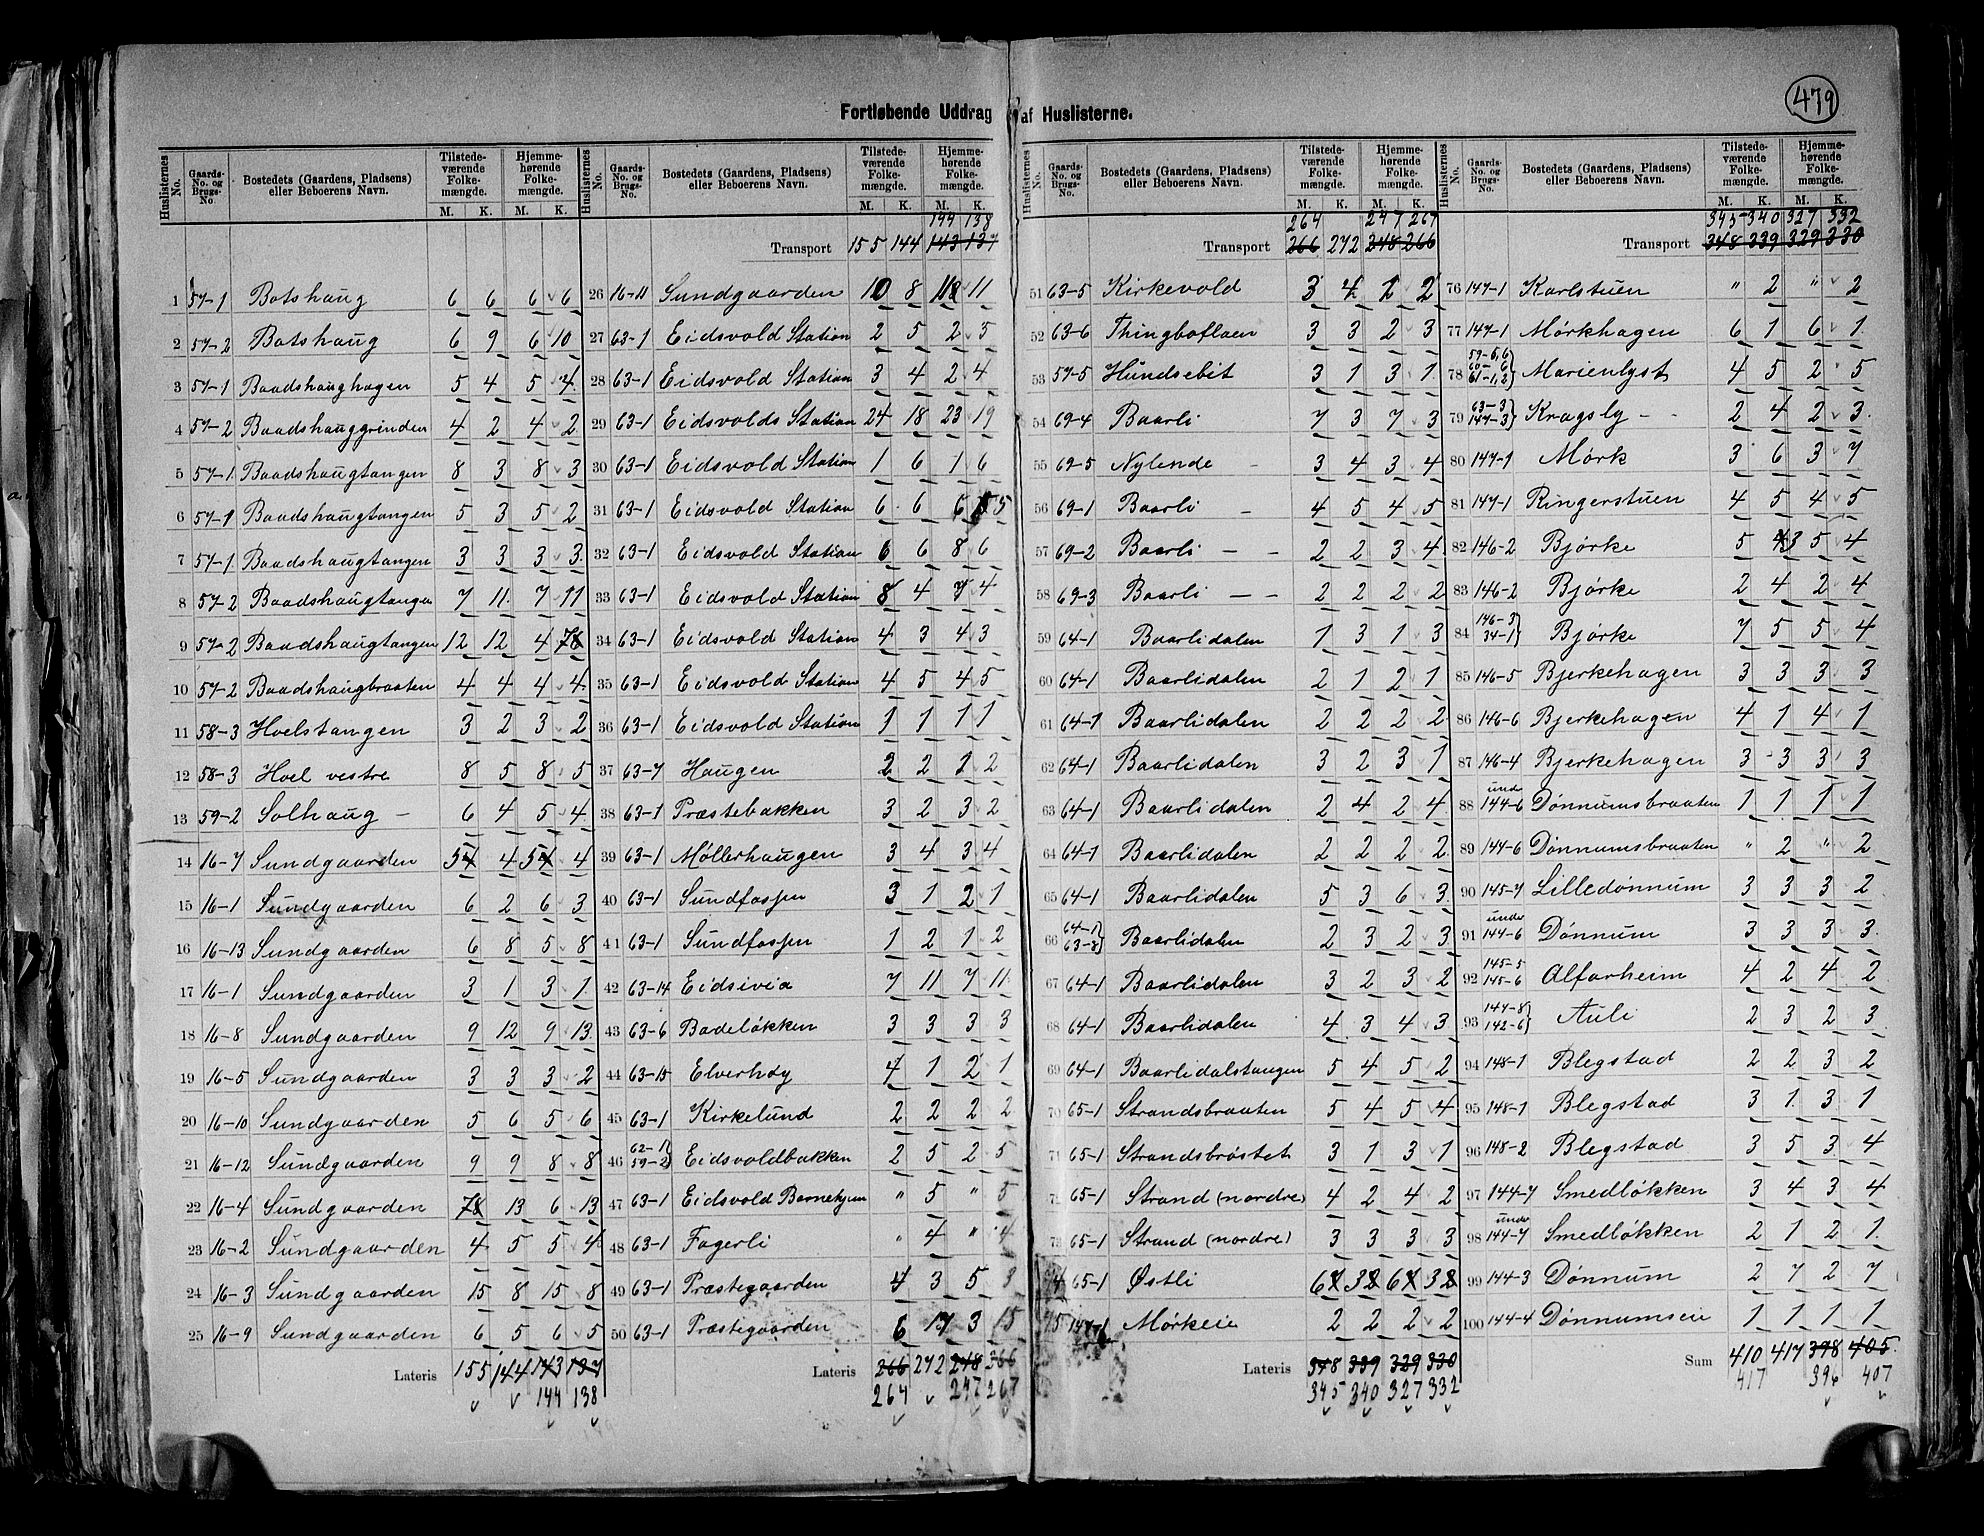 479
Fortløbende Uddrag af Huslisterne.
Huslisternes No. Gaards-No. og Brugs-No Bostedets (Gaardens, Pladsens) eller Beboerens Navn. Tilstedeværende Folkemængde. M. K. Hjemmehørende Folkemængde. M. K.
1 57-1 Botshaug 6 6 6 6
2 57-2 Botshaug 6 9 6 10
3 57-1 Baadshaughagen 5 4 5 4
4 57-2 Baadshauggrinden 4 2 4 2
5 57-1 Baadshaugtangen 8 3 8 3
6 57-1 Baadshaugtangen 5 3 5 2
7 57-1 Baadshaugtangen 3 3 3 3
8 57-2 Baadshaugtangen 7 11 7 11
9 57-2 Baadshaugtangen 12 12 4 7
10 57-2 Baadshaugbraaten 4 4 4 4
11 58-3 Hoelstangen 3 2 3 2
12 58-3 Hoel vestre 8 5 8 5
13 59-2 Solhaug - 6 4 5 4
14 16-7 Sundgaarden 5 4 5 4
15 16-1 Sundgaarden 6 2 6 3
16 16-13 Sundgaarden 6 8 5 8
17 16-1 Sundgaarden 3 1 3 1
18 16-8 Sundgaarden 9 12 9 13
19 16-5 Sundgaarden 3 3 3 2
20 16-10 Sundgaarden 5 6 5 6
21 16-12 Sundgaarden 9 9 8 8
22 16-4 Sundgaarden 7 13 6 13
23 16-2 Sundgaarden 4 5 5 4
24 16-3 Sundgaarden 15 8 15 8
25 16-9 Sundgaarden 6 5 6 5
Lateris 155 144 143 137
144 138
Huslisternes No. Gaards-No. og Brugs-No. Bostedets (Gaardens, Pladsens) eller Beboerens Navn. Tilstedeværende Folkemængde. M. K. Hjemmehørende Folkemængde. M. K.
144 138
Transport 155 144 143 137
26 16-11 Sundgaarden 10 8 11 11
27 63-1 Eidsvold Station 2 5 2 5
28 63-1 Eidsvold Station 3 4 2 4
29 63-1 Eidsvolds Station 24 18 23 19
30 63-1 Eidsvold Station 1 6 1 6
31 63-1 Eidsvold Station 6 6 6 5
32 63-1 Eidsvold Station 6 6 8 6
33 63-1 Eidsvold Station 8 4 7 4
34 63-1 Eidsvold Station 4 3 4 3
35 63-1 Eidsvold Station 4 5 4 5
36 63-1 Eidsvold Station 1 1 1 1
37 63-7 Haugen 2 2 2 2
38 63-1 Præstebakken 3 2 3 2
39 63-1 Møllerhaugen 3 4 3 4
40 63-1 Sundfossen 3 1 2 1
41 63-1 Sundfossen 1 2 1 2
42 63-14 Eidsivia 7 11 7 11
43 63-6 Badeløkken 3 3 3 3
44 63-15 Elverhøy 4 1 2 1
45 63-1 Kirkelund 2 2 2 2
46 59-2 Eidsvoldbakken 2 5 2 5
47 63-1 Eidsvold Barnehjem " 5 " 5
48 63-1 Fagerli " 4 " 4
49 63-1 Præstegaarden 4 3 5 3
50 63-1 Præstegaarden 6 17 3 15
Lateris 266 272 248 266
264 247 267
No. Gaards-No. og Brugs-No. Bostedets (Gaardens, Pladsens) eller Beboerens Navn. Tilstedeværende Folkemængde. M. K. Hjemmehørende Folkemængde. M. K.
264 247 267
Transport 266 272 248 266
51 63-5 Kirkevold 3 4 2 2
52 63-6 Thingboflaen 3 3 2 3
53 57-5 Hundsebit 3 1 3 1
54 69-4 Baarli 7 3 7 3
55 69-5 Nylende - 3 4 3 4
56 69-1 Baarli - 4 5 4 5
57 69-2 Baarli - - 2 2 3 4
58 69-3 Baarli - - 2 2 2 2
59 64-1 Baarlidalen 1 3 1 3
60 64-1 Baarlidalen 2 1 2 1
61 64-1 Baarlidalen 2 2 2 2
62 64-1 Baarlidalen 3 2 3 1
63 64-1 Baarlidalen 2 4 2 4
64 64-1 Baarlidalen 2 2 2 2
65 64-1 Baarlidalen 5 3 6 3
66 64-1 63-8 Baarlidalen 2 3 2 3
67 64-1 Baarlidalen 3 2 3 2
68 64-1 Baarlidalen 4 3 4 3
69 64-1 Baarlidalstangen 5 4 5 2
70 65-1 Strandsbraaten 5 4 5 4
71 65-1 Strandsbrøstet 3 1 3 1
72 65-1 Strand (nordre) 4 2 4 2
73 65-1 Strand (nordre) 3 3 3 3
74 65-1 Østli 6 3 6 3
75 147-1 Mørkeie 2 2 2 2
Lateris 348 339 329 330
345 340 327 332
Huslisternes No. Gaards-No. og Brugs-No. Bostedets (Gaardens, Pladsens) eller Beboerens Navn. Tilstedeværende Folkemængde. M. K. Hjemmehørende Folkemængde. M. K.
345 340 327 332
Transport 348 339 329 330
76 147-1 Karlstuen " 2 " 2
77 147-1 Mørkhagen 6 1 6 1
78 59-5,6 60-6 61-1,2 Marienlyst 4 5 2 5
79 63-3 147-3 Kragsly - - 2 4 2 3
80 147-1 Mørk 3 6 3 7
81 147-1 Ringerstuen 4 5 4 5
82 146-2 Bjørke 5 3 5 4
83 146-2 Bjørke 2 4 2 4
84 146-3 34-1 Bjørke 7 5 5 4
85 146-5 Bjerkehagen 3 3 3 3
86 146-6 Bjerkehagen 4 1 4 1
87 146-4 Bjerkehagen 3 3 3 3
88 und 144-6 Dønnumsbraaten 1 1 1 1
89 144-6 Dønnumsbraaten " 2 " 2
90 145-7 Lilledønnum 3 3 3 2
91 under 144-6 Dønnum 3 3 3 3
92 145-5 145-6 Alfarheim 4 2 4 2
93 144-8 142-6 Auli 2 3 2 3
94 148-1 Blegstad 2 2 3 2
95 148-1 Blegstad 3 1 3 1
96 148-2 Blegstad 3 5 3 4
97 144-7 Smedløkken 3 4 3 4
98 under 144-7 Smedløkken 2 1 2 1
99 144-3 Dønnum 2 7 2 7
100 144-4 Dønnumseie 1 1 1 1
Sum 410 417 398 405
417 396 407